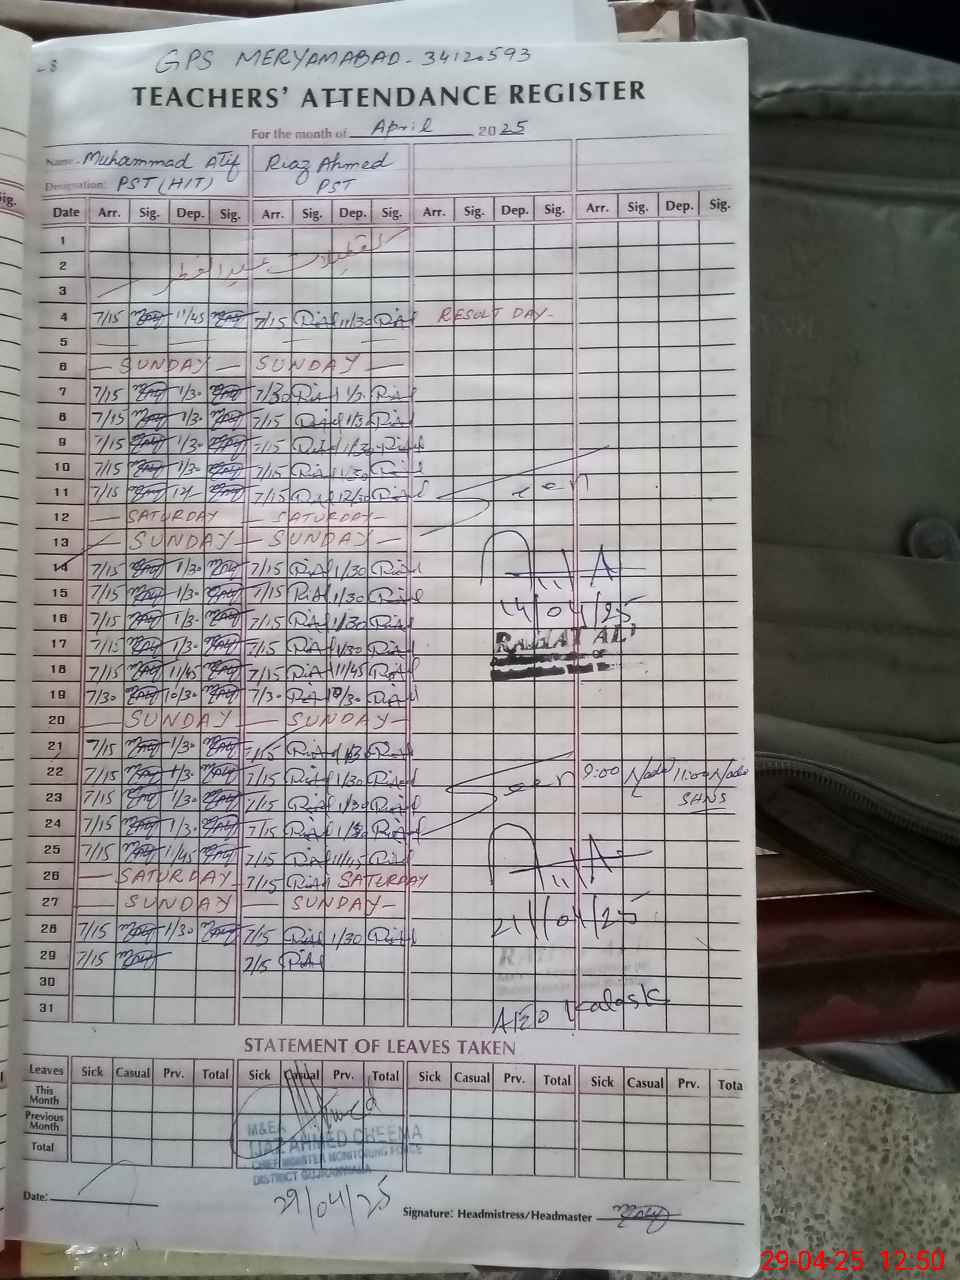 - 8 GPS MERYAMABAD - 34120593
TEACHERS' ATTENDANCE REGISTER
For the month of April 2025
Name: Muhammad Atif Riaz Ahmed
Designation: PST (H/T) PST
Date Arr. Sig. Dep. Sig. Arr. Sig. Dep. Sig. Arr. Sig. Dep. Sig. Arr. Sig. Dep. Sig.
1
2 تعطیلات عید الفطر
3
4 7/15 11/45 7/15 Riaz 11/30 Riaz RESULT DAY-
5
6 — SUNDAY — SUNDAY —
7 7/15 1/30 7/30 Riaz 1/30 Riaz
8 7/15 1/30 7/15 Riaz 1/30 Riaz
9 7/15 1/30 7/15 Riaz 1/30 Riaz
10 7/15 1/30 7/15 Riaz 1/30 Riaz
11 7/15 12/ 7/15 Riaz 12/30 Riaz Seen
12 — SATURDAY — SATURDAY —
13 — SUNDAY — SUNDAY —
14 7/15 1/30 7/15 Riaz 1/30 Riaz
15 7/15 1/30 7/15 Riaz 1/30 Riaz 14/04/25
16 7/15 1/30 7/15 Riaz 1/30 Riaz RAHAT ALI
17 7/15 1/30 7/15 Riaz 1/30 Riaz
18 7/15 11/45 7/15 Riaz 11/45 Riaz
19 7/30 10/30 7/30 Riaz 10/30 Riaz
20 — SUNDAY — SUNDAY —
21 7/15 1/30 7/15 Riaz 1/30 Riaz
22 7/15 1/30 7/15 Riaz 1/30 Riaz Seen 9:00 Nadia 11:00 Nadia
23 7/15 1/30 7/15 Riaz 1/30 Riaz SHNS
24 7/15 1/30 7/15 Riaz 1/30 Riaz
25 7/15 1/45 7/15 Riaz 11/45 Riaz
26 — SATURDAY 7/15 Riaz SATURDAY
27 — SUNDAY — SUNDAY —
28 7/15 1/30 7/15 Riaz 1/30 Riaz 21/04/25
29 7/15 7/15 Riaz
30
31 AEO Kalask
STATEMENT OF LEAVES TAKEN
Leaves Sick Casual Prv. Total Sick Casual Prv. Total Sick Casual Prv. Total Sick Casual Prv. Tota
This Month
Previous Month
Total
M&EA
IJAZ AHMED CHEEMA
CHIEF MINISTER MONITORING FORCE
DISTRICT GUJRANWALA
29/04/25
Date:
Signature: Headmistress/Headmaster
29-04-25 12:50